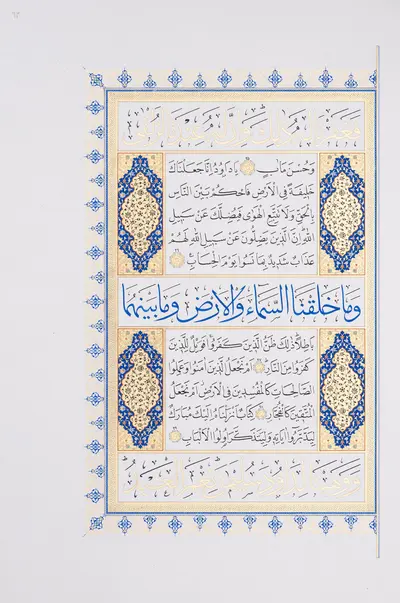 وَحُسْنَ مَاٰبٍ يَا دَاوُدُ اِنَّا جَعَلْنَاكَ
خَلِيفَةً فِي الْاَرْضِ فَاحْكُمْ بَيْنَ النَّاسِ
بِالْحَقِّ وَلَا تَتَّبِعِ الْهَوٰى فَيُضِلَّكَ عَنْ سَبِيلِ
اللّٰهِ اِنَّ الَّذِينَ يَضِلُّونَ عَنْ سَبِيلِ اللّٰهِ لَهُمْ
عَذَابٌ شَدِيدٌ بِمَا نَسُوا يَوْمَ الْحِسَابِ
وَمَا خَلَقْنَا السَّمَاءَ وَالْاَرْضَ وَمَا بَيْنَهُمَا
بَاطِلًا ذٰلِكَ ظَنُّ الَّذِينَ كَفَرُوا فَوَيْلٌ لِلَّذِينَ
كَفَرُوا مِنَ النَّارِ اَمْ نَجْعَلُ الَّذِينَ اٰمَنُوا وَعَمِلُوا
الصَّالِحَاتِ كَالْمُفْسِدِينَ فِي الْاَرْضِ اَمْ نَجْعَلُ
الْمُتَّقِينَ كَالْفُجَّارِ كِتَابٌ اَنْزَلْنَاهُ اِلَيْكَ مُبَارَكٌ
لِيَدَّبَّرُوا اٰيَاتِهِ وَلِيَتَذَكَّرَ اُولُوا الْاَلْبَابِ